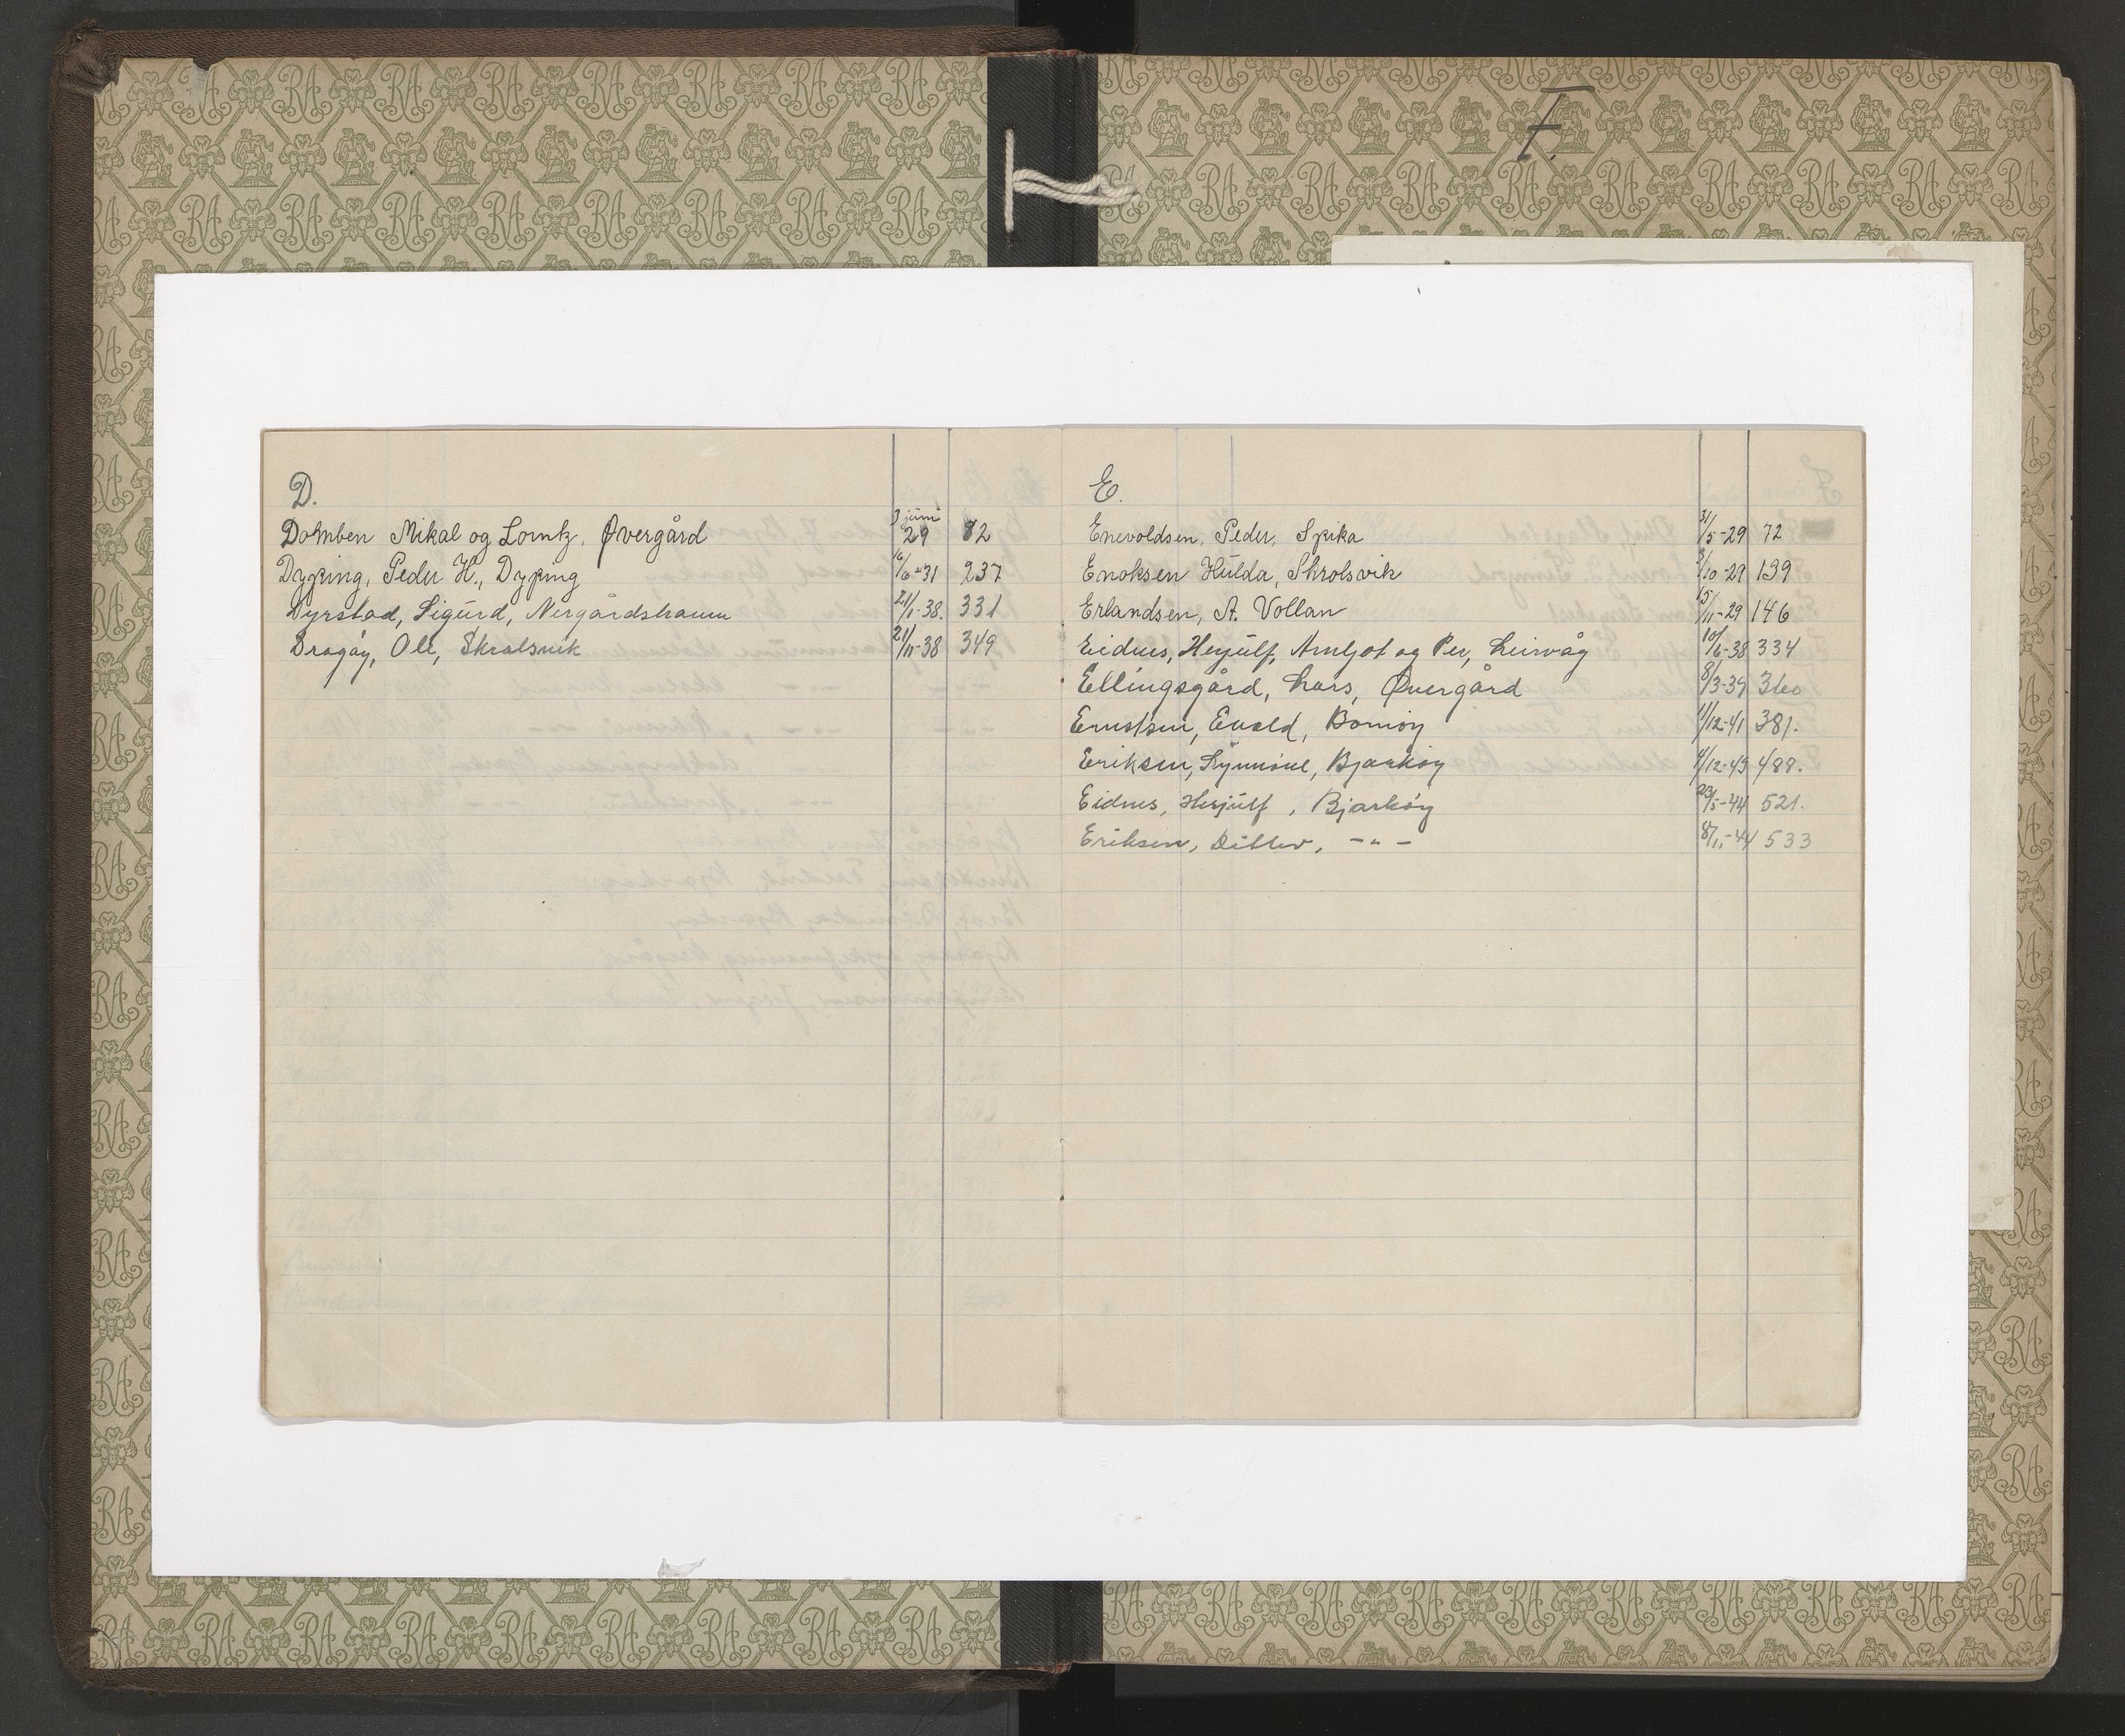 F.
D.
3 juni
Dolmben Mikal og Lorntz, Øvergård 29 82
Dyping, Peder H., Dyping 16/6-31 237
Dyrstad, Sigurd, Nergårdshamn 21/1-38. 331
Dragøy, Ole, Skrolsvik 21/11-38 349
E.
Enevoldsen, Peder, Spika 31/5-29 72
Enoksen Hulda, Skrolsvik 3/10-29 139
Erlandsen, A. Vollan 15/11-29 146
Eidnes, Herjulf, Arnljot og Per, Leirvåg 10/6-38 334
Ellingsgård, Lars, Øvergård 8/3-39 360
Ernstsen, Evald, Bomøy 11/12-41 381.
Eriksen, Synnöve, Bjarköy 4/12-43 489.
Eidnes, Herjulf, Bjarköy 23/5-44 521.
Eriksen, Ditlev, -"- 8/11-44 533